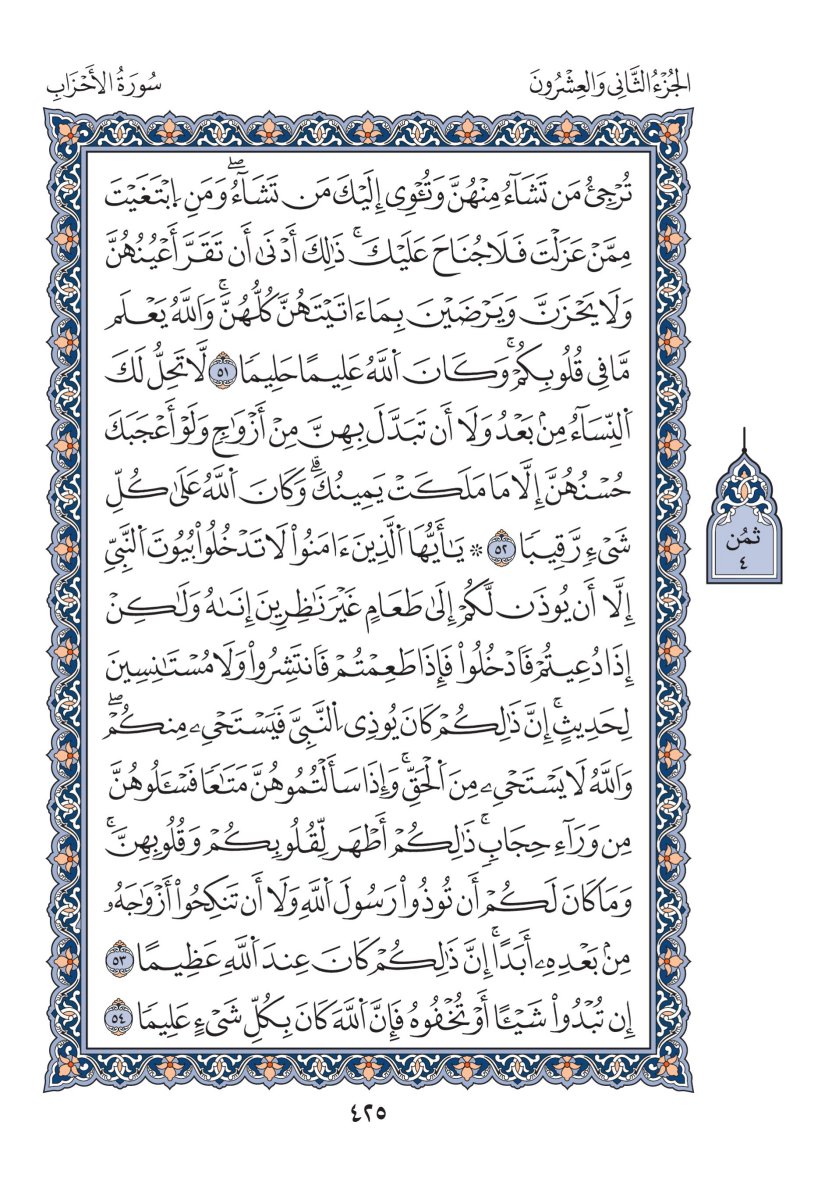 الجُزْءُ الثَّانِى وَالعِشْرُونَ
سُورَةُ الأَحْزَابِ
تُرْجِئُ مَن تَشَآءُ مِنْهُنَّ وَتُـْٔوِى إِلَيْكَ مَن تَشَآءُۖ وَمَنِ اِ۪بْتَغَيْتَ
مِمَّنْ عَزَلْتَ فَلَا جُنَاحَ عَلَيْكَۚ ذَٰلِكَ أَدْنَىٰ أَن تَقَرَّ أَعْيُنُهُنَّ
وَلَا يَحْزَنَّ وَيَرْضَيْنَ بِمَا ءَاتَيْتَهُنَّ كُلُّهُنَّۚ وَاَللَّهُ يَعْلَم
مَّا فِى قُلُوبِكُمْۚ وَكَانَ اَللَّهُ عَلِيمًا حَلِيمًا ٥١ لَّا تَحِلُّ لَكَ
اَلنِّسَآءُ مِنۢ بَعْدُ وَلَا أَن تَبَدَّلَ بِهِنَّ مِنْ أَزْوَٰجٍ وَلَوْ أَعْجَبَكَ
حُسْنُهُنَّ إِلَّا مَا مَلَكَتْ يَمِينُكَۗ وَكَانَ اَللَّهُ عَلَىٰ كُلِّ
شَىْءٍ رَّقِيبًا ٥٢ ۞ يَٰأَيُّهَا اَلَّذِينَ ءَامَنُواْ لَا تَدْخُلُواْ بُيُوتَ اَلنَّبِىِّ
إِلَّا أَن يُوذَن لَّكُمْ إِلَىٰ طَعَامٍ غَيْرَ نَٰظِرِينَ إِنَىٰهُ وَلَٰكِنْ
إِذَا دُعِيتُمْ فَاَدْخُلُواْ فَإِذَا طَعِمْتُمْ فَاَنتَشِرُواْ وَلَا مُسْتَٰنِسِينَ
لِحَدِيثٍۚ إِنَّ ذَٰلِكُمْ كَانَ يُوذِى اِ۬لنَّبِىَّ فَيَسْتَحْىِۦ مِنكُمْۖ
وَاَللَّهُ لَا يَسْتَحْىِۦ مِنَ اَلْحَقِّۚ وَإِذَا سَأَلْتُمُوهُنَّ مَتَٰعًا فَسْـَٔلُوهُنَّ
مِن وَرَآءِ حِجَابٍۚ ذَٰلِكُمْ أَطْهَر لِّقُلُوبِكُمْ وَقُلُوبِهِنَّۚ
وَمَا كَانَ لَكُمْ أَن تُوذُواْ رَسُولَ اَللَّهِ وَلَا أَن تَنكِحُواْ أَزْوَٰجَهُۥ
مِنۢ بَعْدِهِۦ أَبَدًاۚ إِنَّ ذَٰلِكُمْ كَانَ عِندَ اَللَّهِ عَظِيمًا ٥٣
إِن تُبْدُواْ شَيْـًٔا أَوْ تُخْفُوهُ فَإِنَّ اَللَّهَ كَانَ بِكُلِّ شَىْءٍ عَلِيمًا ٥٤
ثُمُن
٤
٤٢٥